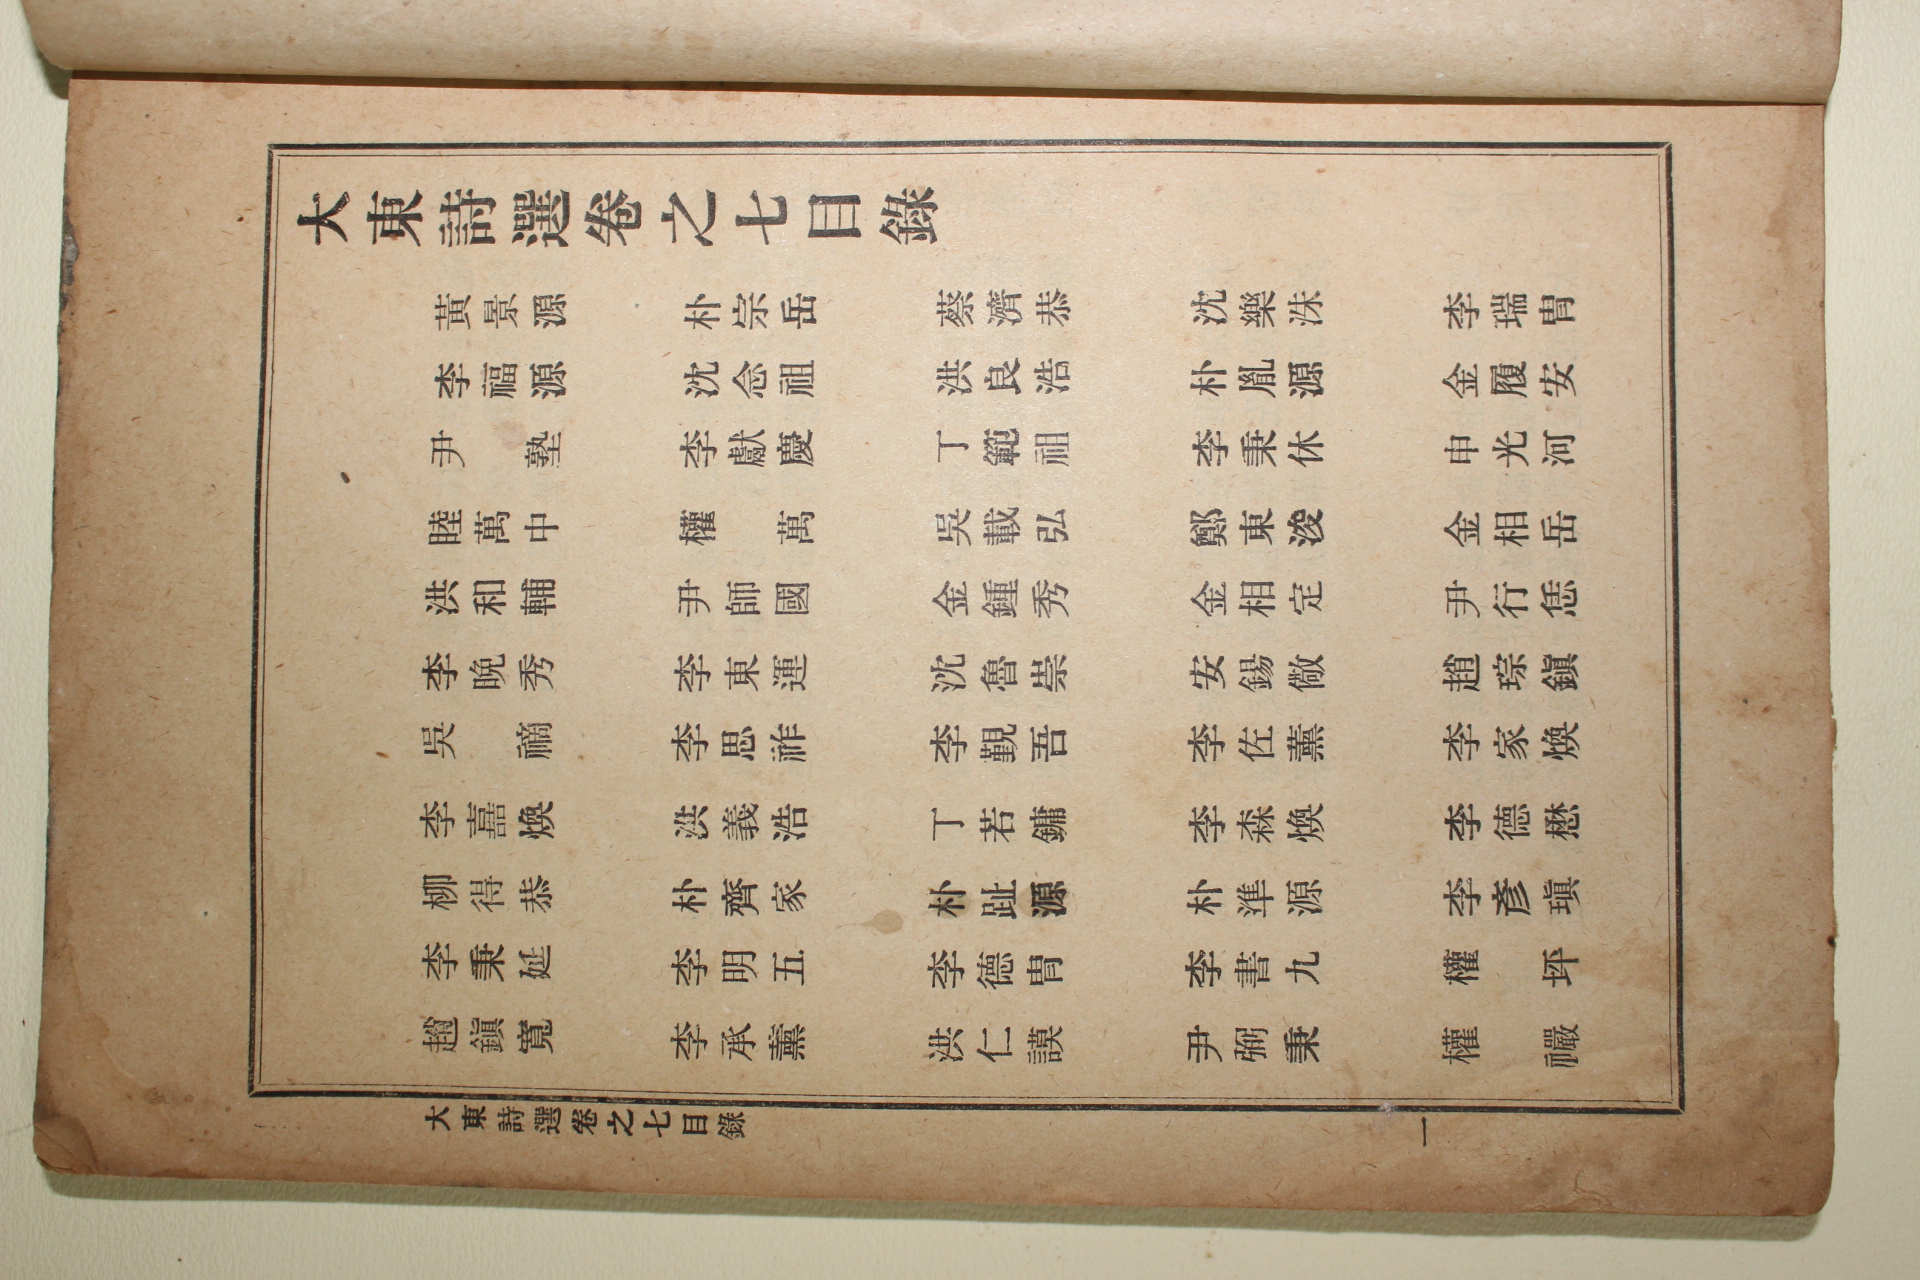 大東詩選卷之七目錄
黃景源 朴宗岳 蔡濟恭 沈樂洙 李瑞冑
李福源 沈念祖 洪良浩 朴胤源 金履安
尹塾 李獻慶 丁範祖 李秉休 申光河
睦萬中 權萬 吳載弘 鄭東浚 金相岳
洪和輔 尹師國 金鍾秀 金相定 尹行恁
李晩秀 李東運 沈魯崇 安錫儆 趙琮鎭
吳 李思祚 李覲吾 李佐薰 李家煥
李嘉煥 洪義浩 丁若鏞 李森煥 李德懋
柳得恭 朴齊家 朴趾源 朴準源 李彥瑱
李秉延 李明五 李德冑 李書九 權坪
趙鎭寬 李承薰 洪仁謨 尹弼秉 權
大東詩選卷之七目錄 一